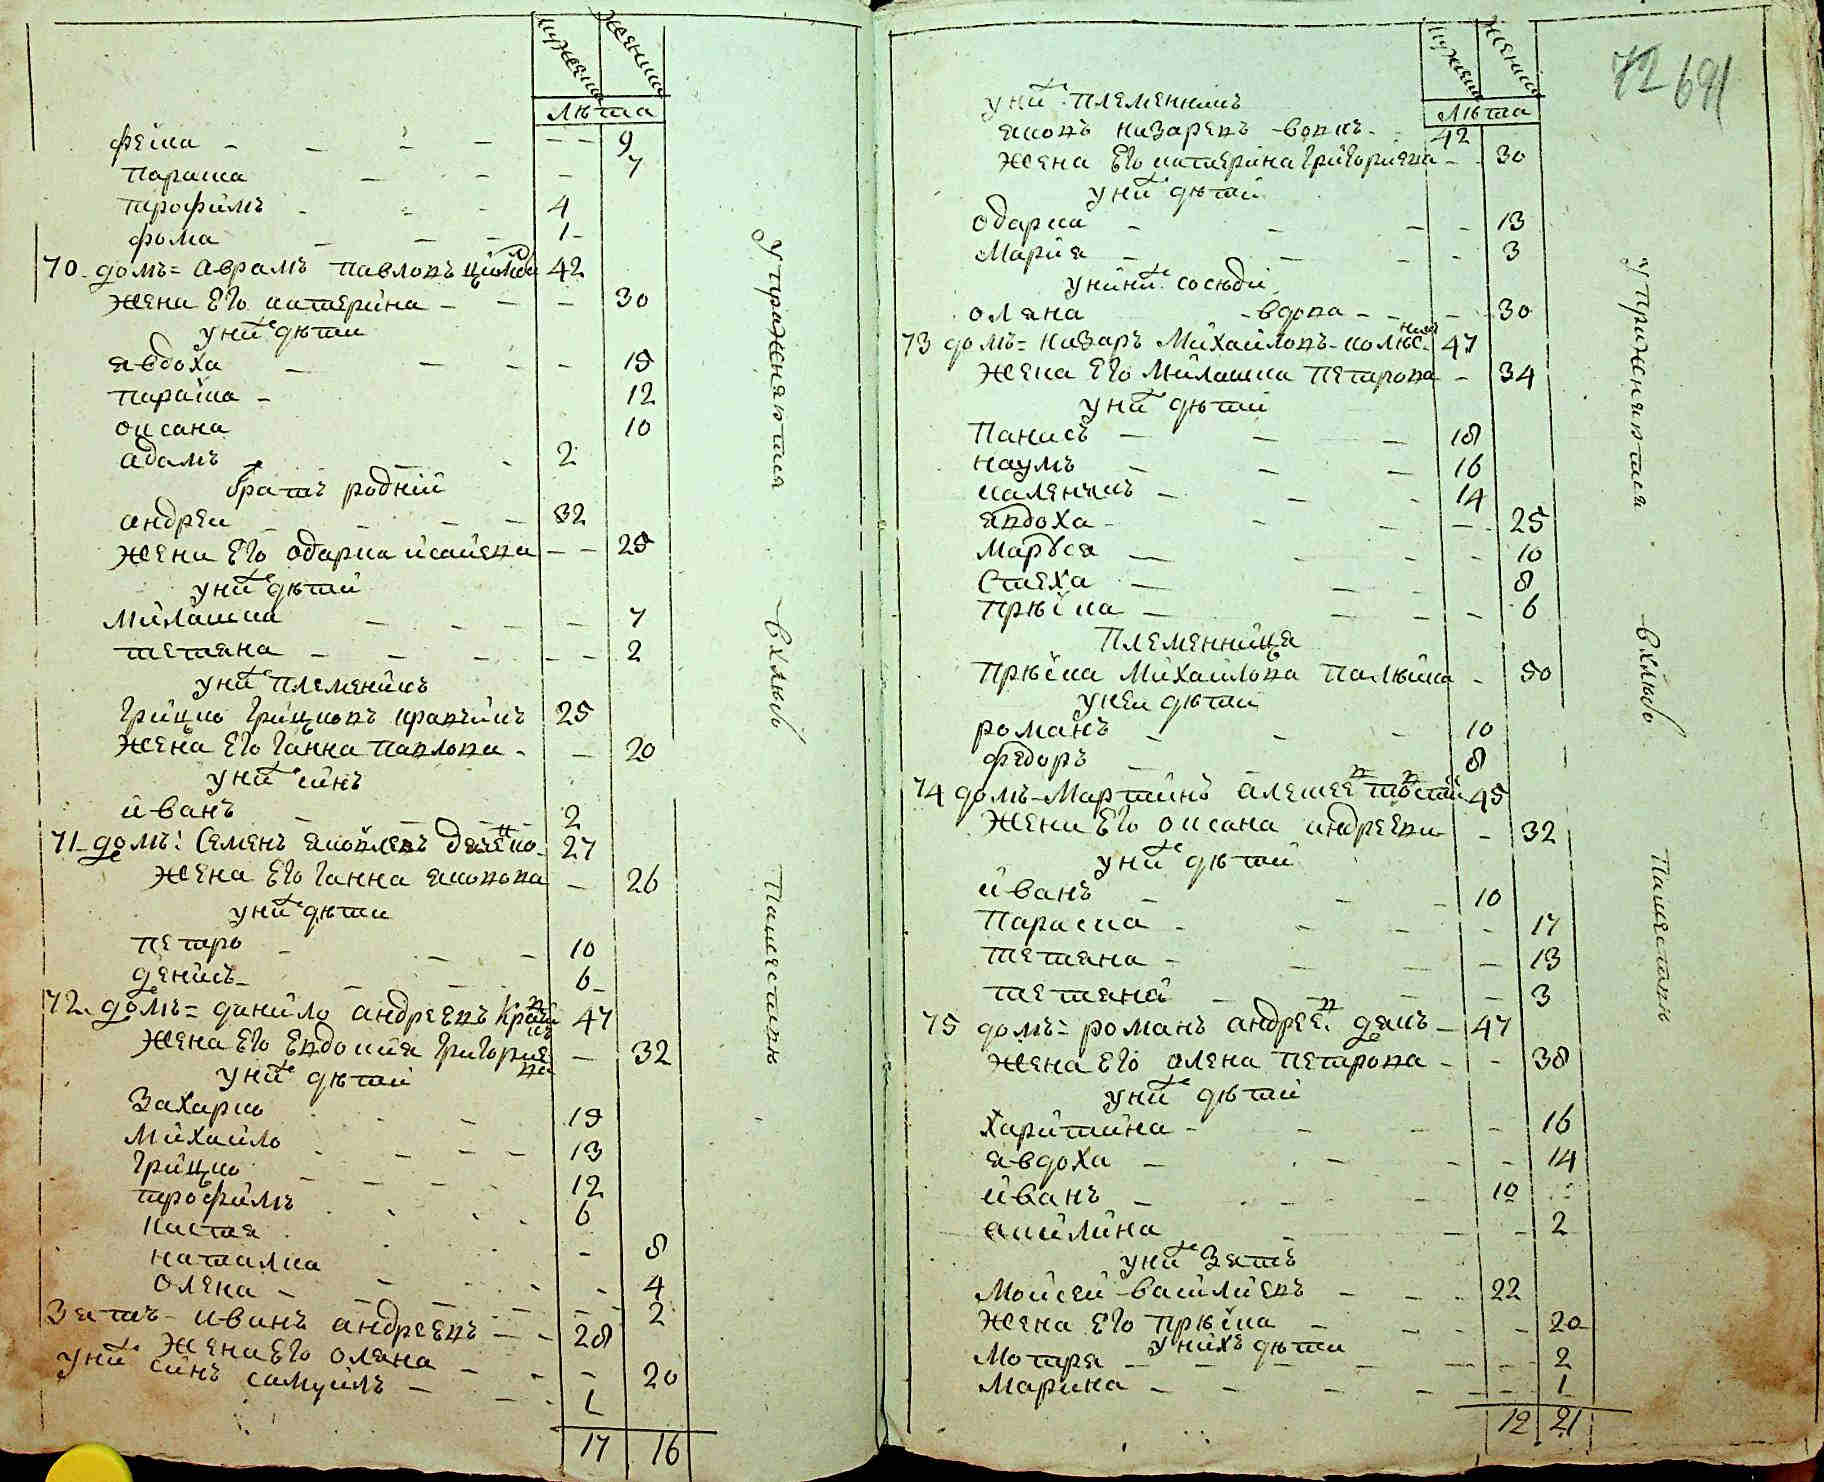 мужеска женска
лѣта
Феска 9
Параска 7
трофимъ 4
фома 1
70. домъ = Аврамъ Павловъ 42
жена Его катерина 30
унихъ дѣти
Авдоха 15
Параска 12
оксана 10
адамъ 2
братъ родній
андрей 32
жена Его одарка исаиева 25
унихъ дѣтей
Милашка 7
тетяна 2
унихъ племенникъ
Грицко Грицковъ кравчикъ 25
жена Его Ганна павлова 20
унихъ синъ
иванъ 2
71. домъ: Семенъ яковлевъ 27
жена Его Ганна яковова 26
унихъ дѣти
петро 10
денисъ 6
72. домъ = данило андреевъ 47
жена Его Евдокия Григориева 32
унихъ дѣтей
Захарко 15
Михаило 13
Грицко 12
трофимъ 6
настя 8
наталка 4
олена 2
Зять иванъ андреевъ 28
жена Его олена 20
унихъ синъ самуилъ 1
17 16
упражняются
в хлѣбо
пашествѣ
мужеска женска
лѣта
72 691
унихъ племенникъ
яковъ назаревъ вовкъ 42
жена Его катерина Григориева 30
унихъ дѣтей
одарка 13
Мария 3
унихъ сосѣди
оляна вдова 30
73 домъ = назаръ Михайловъ колѣсникъ 47
жена Его Милашка Петрова 34
унихъ дѣтей
Панасъ 18
наумъ 16
каленикъ 14
явдоха 25
Маруся 10
Стеха 8
Прѣска 6
Племенница
Прѣска Михаилова 50
унеи дѣтеи
романъ 10
федоръ 8
74 домъ Мартинъ алексеевъ товстий 45
жена Его оксана андреева 32
унихъ дѣтей
иванъ 10
Параска 17
тетяна 13
тетяна 3
75 домъ = романъ андреевъ дякъ 47
жена Его олена петрова 38
унихъ дѣтей
Харитина 16
явдоха 14
иванъ 10
акилина 2
унихъ Зять
Моисей василиевъ 22
жена Его прѣска 20
унихъ дѣти
Мотря 2
Марина 1
12 21
упражняются
в хлѣбо
пашествѣ